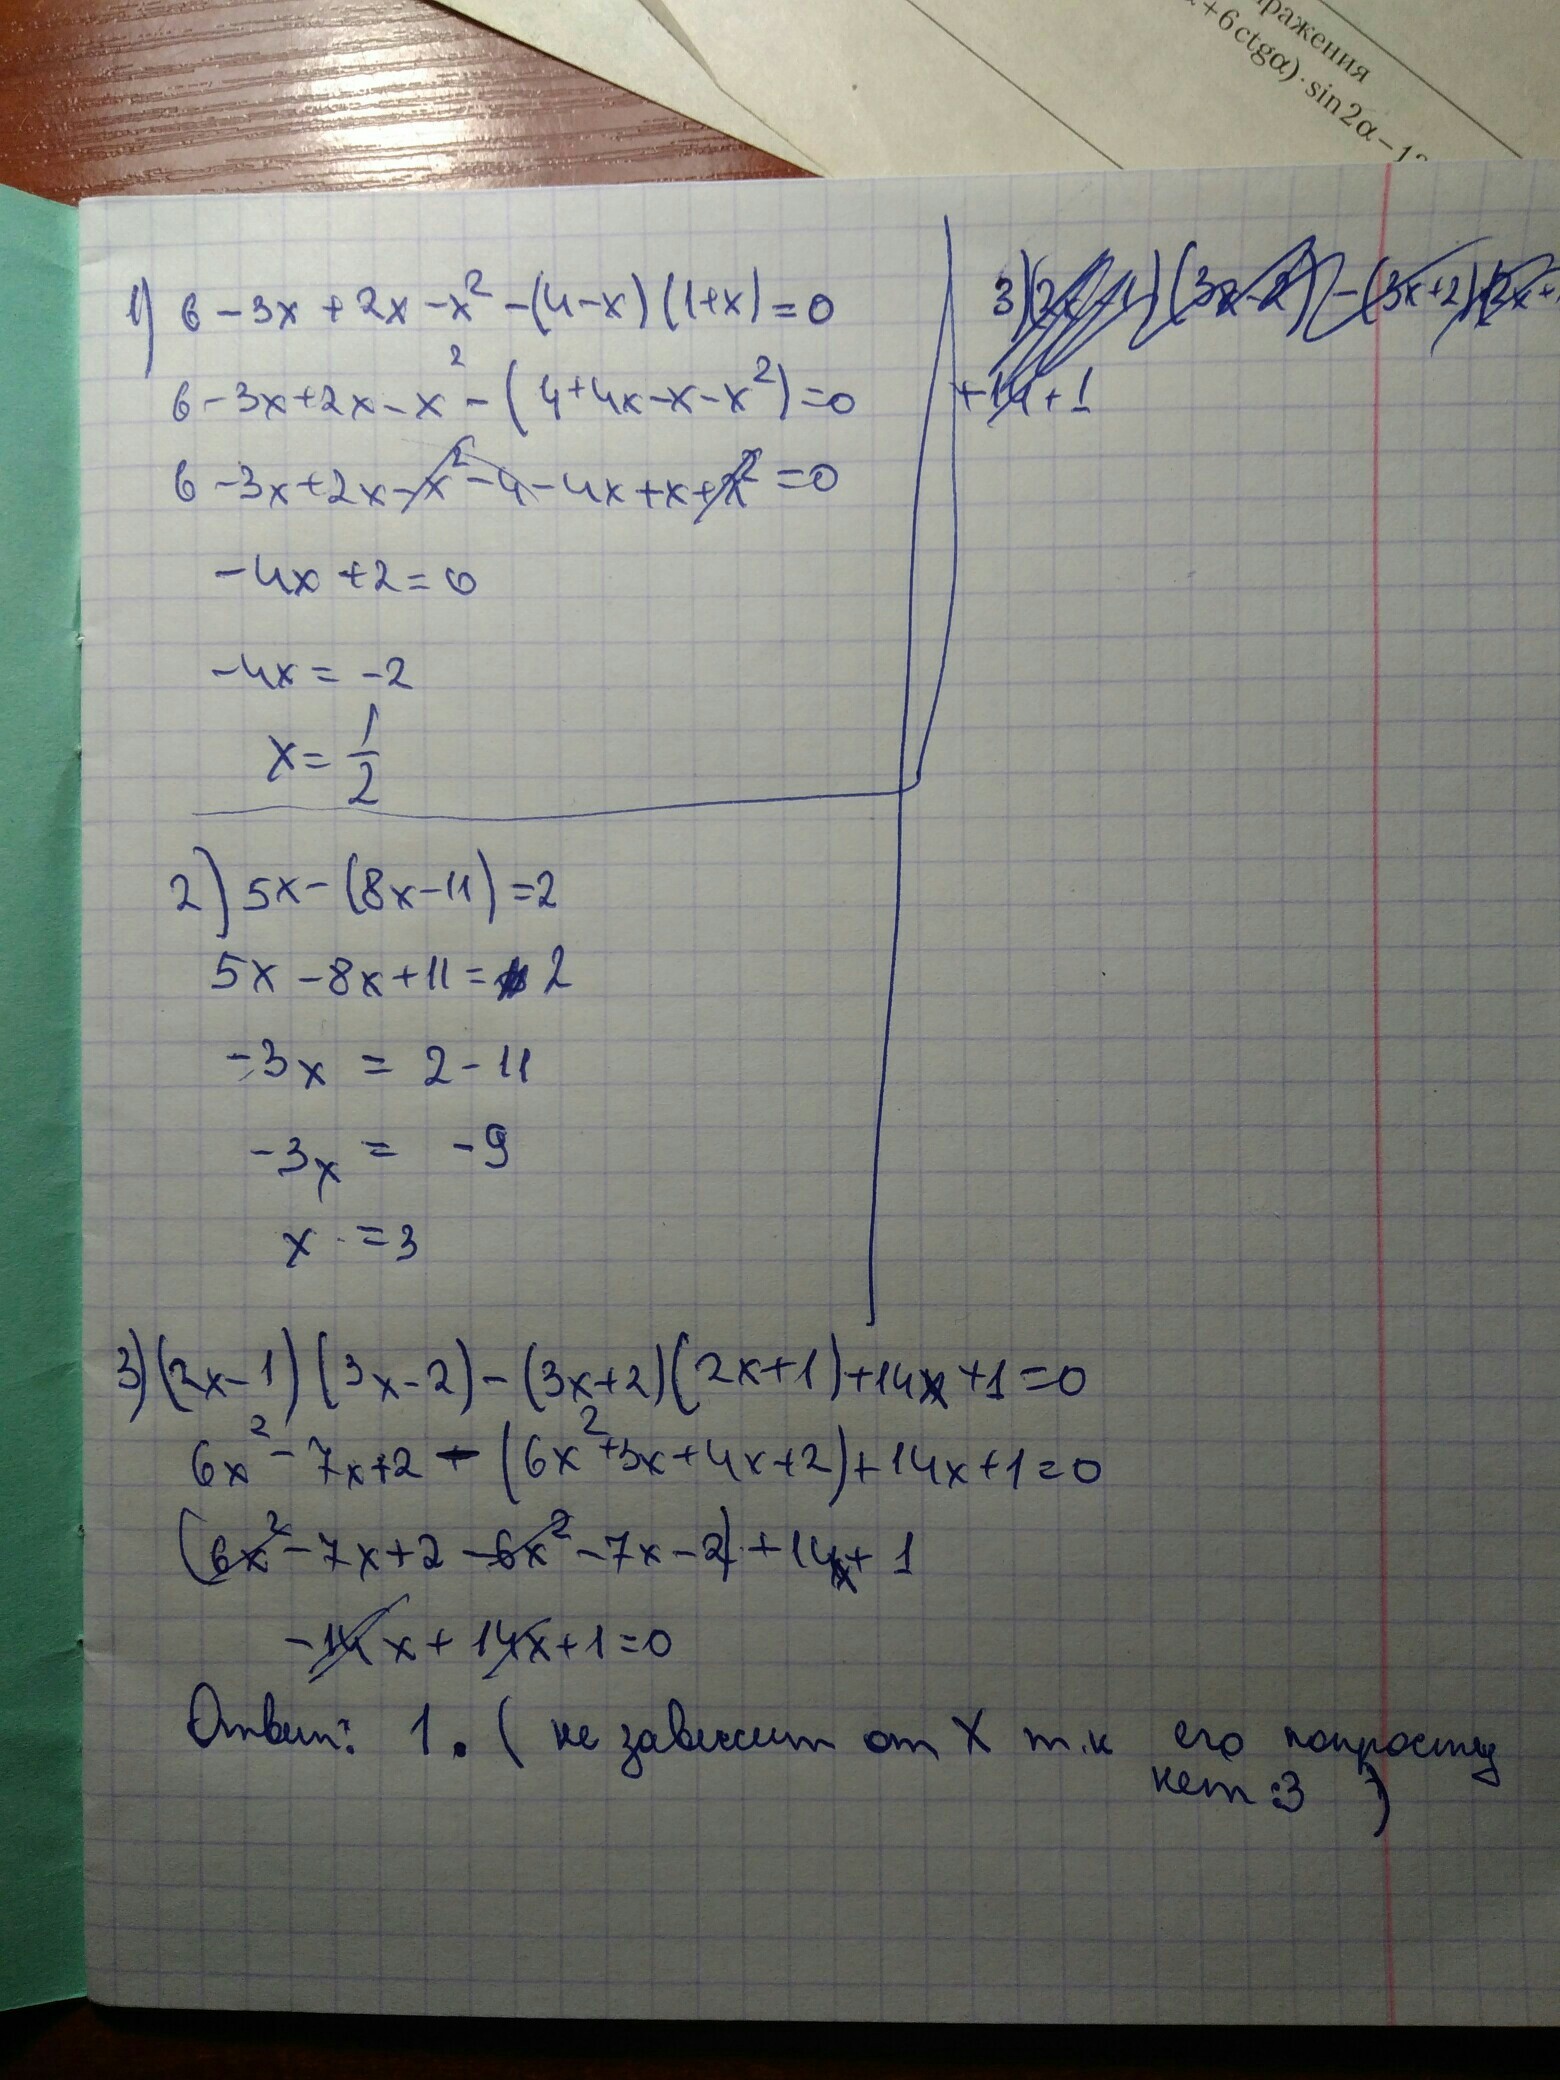 ражения
+6ctgα)·sin2α−12
1) 6-3x+2x-x²-(4-x)(1+x)=0
6-3x+2x-x²-(4+4x-x-x²)=0
6-3x+2x-x²-4-4x+x+x²=0
-4x+2=0
-4x=-2
x=1/2
3)
(3x-2)-(3x+2)(2x+
+14+1
2) 5x-(8x-11)=2
5x-8x+11=2
-3x = 2-11
-3x = -9
x =3
3) (2x-1)(3x-2)-(3x+2)(2x+1)+14x+1=0
6x²-7x+2-(6x²+3x+4x+2)+14x+1=0
(6x²-7x+2-6x²-7x-2)+14x+1
-14x+14x+1=0
Ответ: 1. (не зависит от X т.к его попросту
нет :3 )